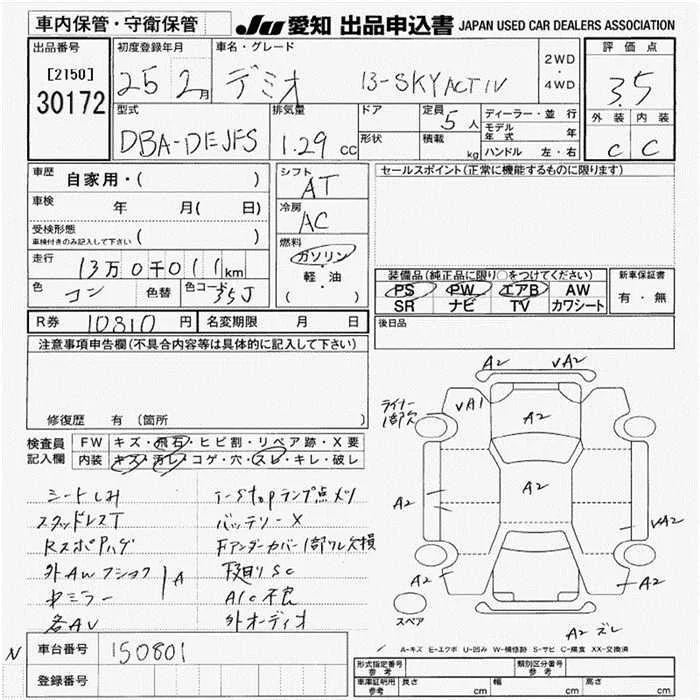 車内保管・守衛保管
JU 愛知 出品申込書 JAPAN USED CAR DEALERS ASSOCIATION
出品番号
[2150]
30172
初度登録年月
25 2月
車名・グレード
デミオ 13-SKYACTIV
2WD
・
4WD
評価点
3.5
外装 内装
C C
型式
DBA-DEJFS
排気量
1.29 cc
ドア
形状
定員 5人
積載 kg
ディーラー・並行
モデル年式 年
ハンドル 左・右
車歴 自家用・( )
車検 年 月( 日)
受検形態
車検付きのみ記入して下さい ( )
走行
13万0千011km
色 コン 色替 色コード 35J
シフト
AT
冷房
AC
燃料
ガソリン
軽・油
( )
セールスポイント(正常に機能するものに限ります)
装備品(純正品に限り○をつけてください)
PS PW エアB AW
SR ナビ TV カワシート
新車保証書
有・無
R券 10810円 名変期限 月 日
後日品
注意事項申告欄(不具合内容等は具体的に記入して下さい)
修復歴 有(箇所 )
検査員
記入欄
FW キズ・飛石・ヒビ割・リペア跡・X要
内装 キズ・汚レ・コゲ・穴・スレ・キレ・破レ
シートしみ
スタッドレスT
Rスポハゲ
外AW
ミラー
AV
T-Stopランプ点メツ
バッテリーX
Fアンダーカバー1部ワレ欠損
下廻りSC
A/C不良
外オーディオ
A
A2 VA2
ライナー1部欠
VA1
A2
A2
A2
VA2
A2
A2
スペア
A2 ズレ
A-キズ E-エクボ U-凹み W-補修跡 S-サビ C-腐食 XX-交換済
N
車台番号 150801
登録番号
形式指定番号
参考
類別区分番号
参考
車庫証明用
参考
長さ cm 幅 cm 高さ cm